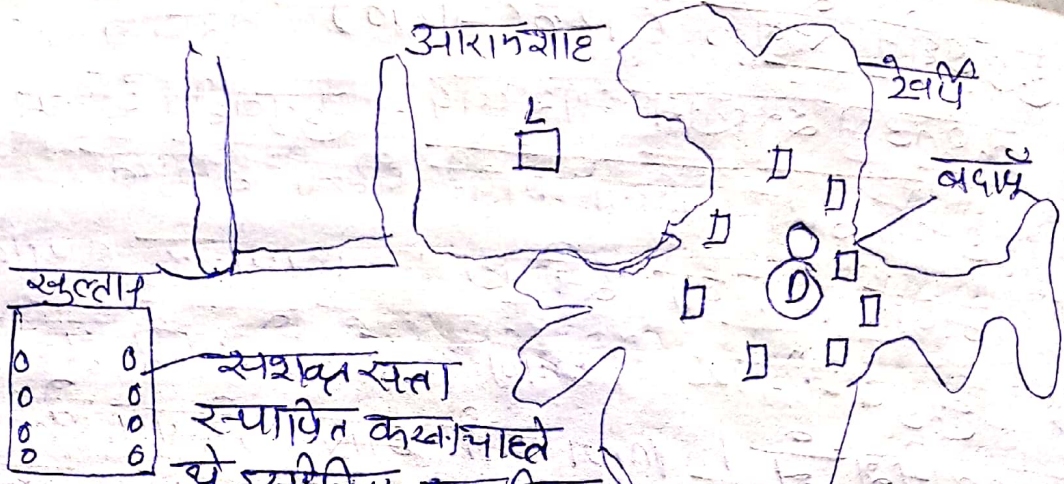 आरामशाह
L
बदायूँ
D
सुल्तान
सशक्त सत्ता
स्थापित करना चाहते
थे